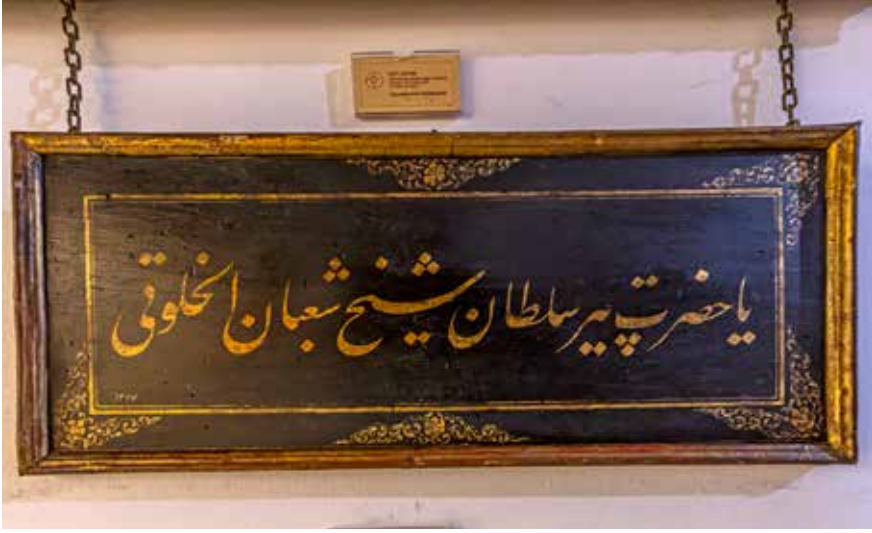 يا حضرت پير سلطان شيخ شعبان الخلوتى